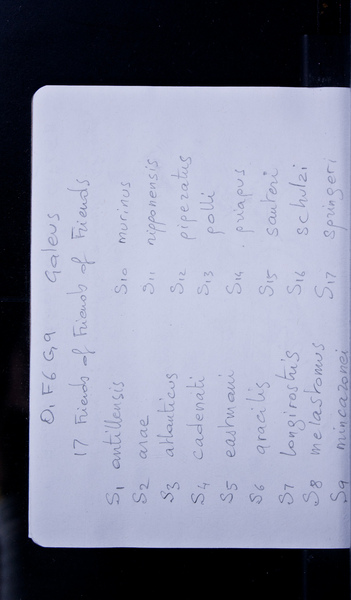 O1 F6 G9 Galeus
17 Friends of Friends of Friends
S1 antillensis
S2 arae
S3 atlanticus
S4 cadenati
S5 eastmani
S6 gracilis
S7 longirostris
S8 melastomus
S9 mincaronei
S10 murinus
S11 nipponensis
S12 piperatus
S13 polli
S14 priapus
S15 sauteri
S16 schulzi
S17 springeri